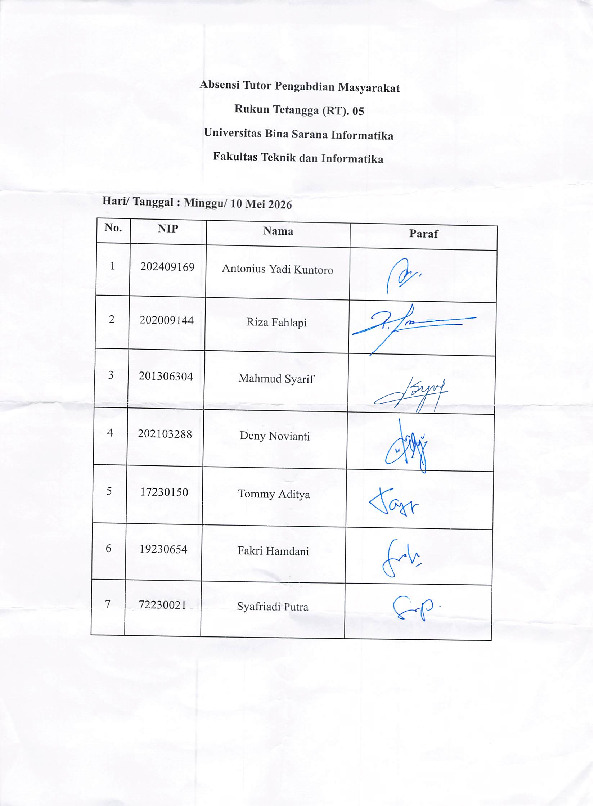 Absensi Tutor Pengabdian Masyarakat
Rukun Tetangga (RT). 05
Universitas Bina Sarana Informatika
Fakultas Teknik dan Informatika
Hari/ Tanggal : Minggu/ 10 Mei 2026
No. NIP Nama Paraf
1 202409169 Antonius Yadi Kuntoro
2 202009144 Riza Fahlapi
3 201306304 Mahmud Syarif
4 202103288 Deny Novianti
5 17230150 Tommy Aditya
6 19230654 Fakri Hamdani
7 72230021 Syafriadi Putra